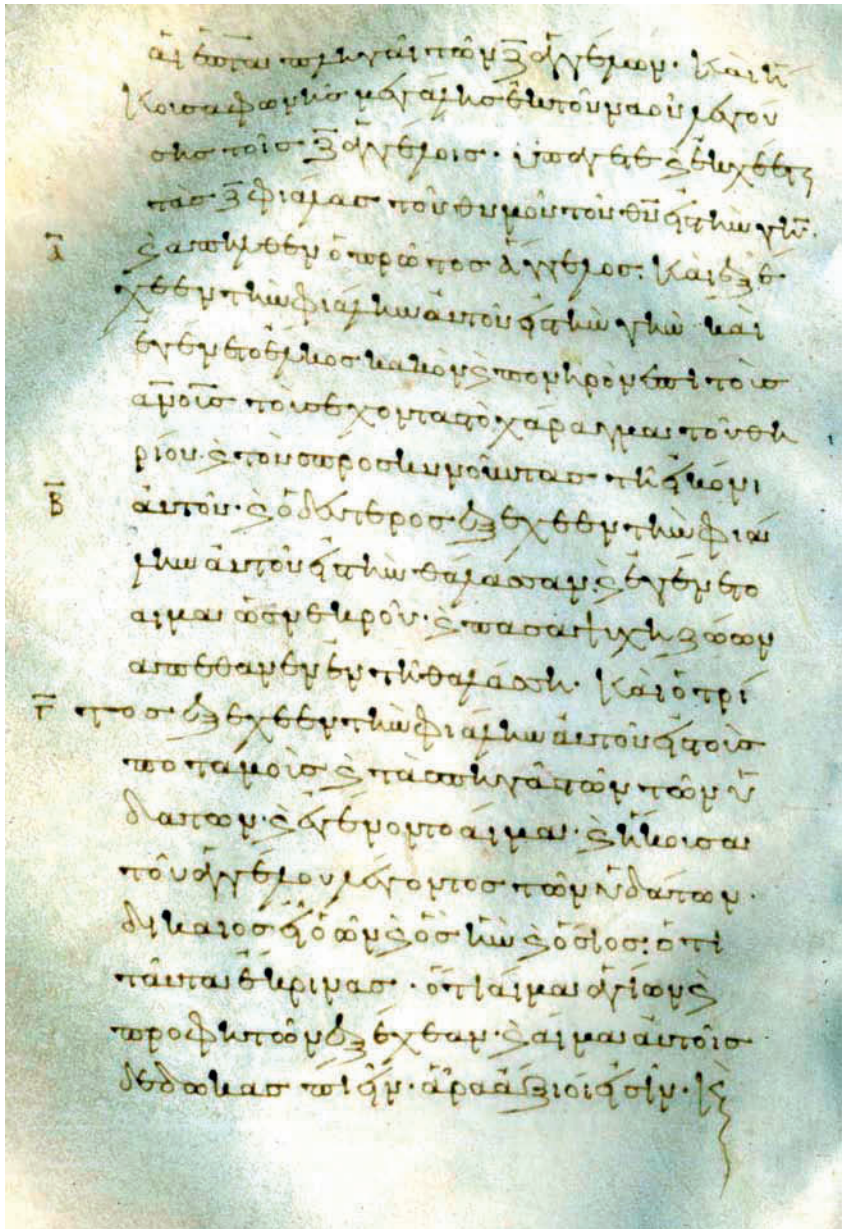 αἱ ἑπτὰ πληγαὶ τῶν ζ̅ ἀγγέλων· Καὶ ἤ
Κοισα φωνῆς μεγάλης ἐκ τοῦ ναοῦ λεγού
σης τοῖς ζ̅ ἀγγέλοις· ὑπάγετε ϗ ἐκχέετε
τὰς ζ̅ φιάλας τοῦ θυμοῦ τοῦ θ̅υ̅ εἰς τὴν γῆν·
Α̅ ϗ ἀπῆλθεν ὁ πρῶτος ἄγγελος: Καὶ ἐξέ
χεεν τὴν φιάλην αὐτοῦ εἰς τὴν γῆν καὶ
ἐγένετο ἕλκος κακὸν ϗ πονηρὸν ἐπὶ τοῖς
α̅ν̅ο̅ι̅ς̅ τοῖς ἔχοντα τὸ χάραγμα τοῦ θη
ρίου ϗ τοὺς προσκυνοῦντας τῇ εἰκόνι
Β̅ αὐτοῦ· ϗ ὁ δεύτερος ἐξέχεεν τὴν φιά
λην αὐτοῦ εἰς τὴν θάλασσαν· ϗ ἐγένετο
αιμα ὡς νεκροῦ· ϗ πᾶσα ψιχὴ ζώων
ἀπέθανεν ἐν τῇ θαλάσσῃ· Καὶ ὁ τρί
Γ̅ τος ἐξέχεεν τὴν φιάλην αὐτοῦ εἰς τοῖς
ποταμοῖς ϗ τὰς πηγὰ τῶν τῶν ὑ
δάτων· ϗ ἐγένοντο αἷμα· ϗ ἤκοισα
τοῦ ἀγγέλου λέγοντος τῶν ὑδάτων·
δίκαιος εἶ ὁ ὢν ϗ ὃς ἦν ϗ ὅσιος: ὅτι
ταῦτα ἔκρινας · ὅτι αἷμα ἁγίων ϗ
προφητῶν ἐξέχεαν· ϗ αἷμα αὐτοῖς
δέδωκας πιεῖν· ἄρα ἄξιοί εἰσιν· Κ